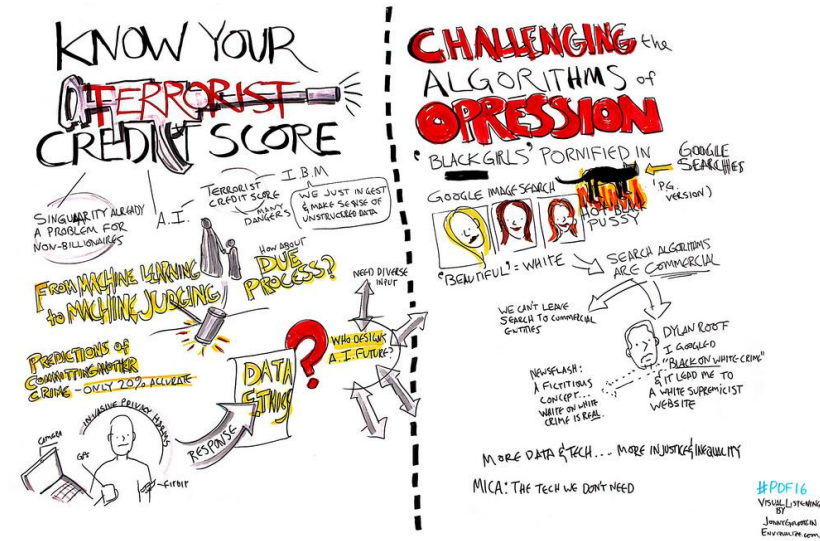 KNOW YOUR
TERRORIST
CREDIT SCORE
SINGULARITY ALREADY
A PROBLEM FOR
NON-BILLIONAIRES
A.I.
TERRORIST
CREDIT SCORE
MANY
DANGERS
I.B.M
WE JUST INGEST
& MAKE SENSE OF
UNSTRUCTURED DATA
FROM MACHINE LEARNING
to MACHINE JUDGING
HOW ABOUT
DUE
PROCESS?
NEED DIVERSE
INPUT
WHO DESIGNS
A.I. FUTURE?
PREDICTIONS OF
COMMITTING ANOTHER
CRIME - ONLY 20% ACCURATE
DATA
ETHICS
?
RESPONSE
INVASIVE PRIVACY HARMS
CAMERA
GPS
FITBIT
CHALLENGING the
ALGORITHMS of
OPRESSION
'BLACK GIRLS' PORNIFIED IN
GOOGLE
SEARCHES
(PG.
VERSION)
HOT BLACK
PUSSY
GOOGLE IMAGE SEARCH
'BEAUTIFUL' = WHITE
SEARCH ALGORITHMS
ARE COMMERCIAL
WE CAN'T LEAVE
SEARCH TO COMMERCIAL
ENTITIES
DYLAN ROOF
I GOOGLED
"BLACK ON WHITE CRIME"
& IT LEAD ME TO
A WHITE SUPREMICIST
WEBSITE
NEWSFLASH:
A FICTITIOUS
CONCEPT...
WHITE ON WHITE
CRIME IS REAL.
MORE DATA & TECH... MORE INJUSTICE & INEQUALITY
MICA: THE TECH WE DON'T NEED
#PDF16
VISUAL LISTENING
BY
JONNY GOLDSTEIN
ENVIZUALIZE.COM